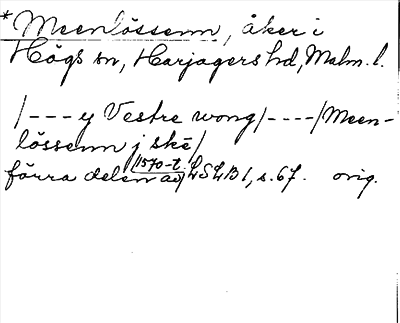 *Meenlössenn, åker i
Högs sn, Harjagers hd, Malm. l.
/---y Vestre wong/----/Meen-
lössenn j skē/
förra delen av 1570-t. LSLB 1, s. 67. orig.